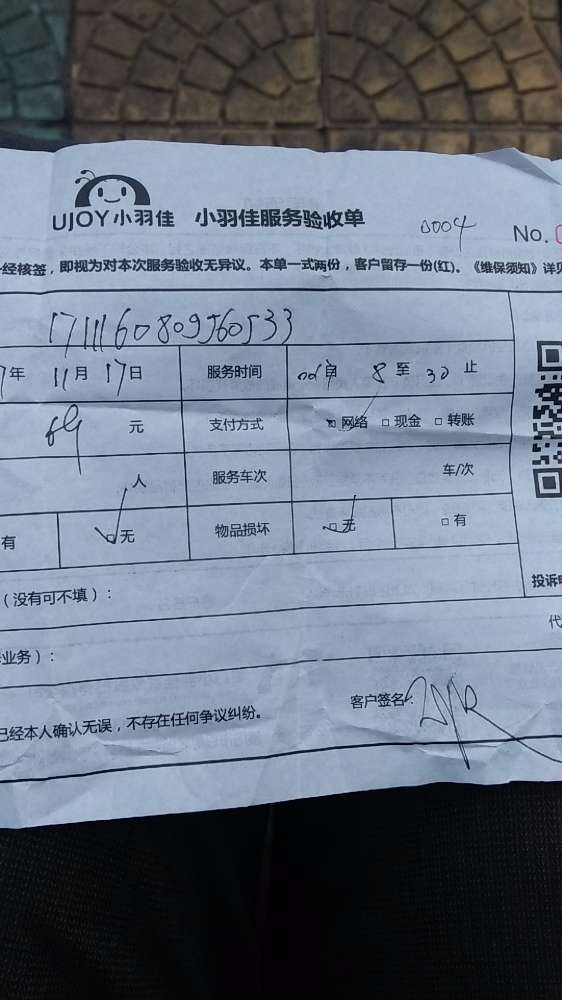 UJOY小羽佳 小羽佳服务验收单 0004 No.
经核签，即视为对本次服务验收无异议。本单一式两份，客户留存一份(红)。《维保须知》详见
年 11月 17日 服务时间 8 至 30 止
元 支付方式 网络 现金 转账
人 服务车次 车/次
有 无 物品损坏 无 有
（没有可不填）： 投诉
业务）： 代
已经本人确认无误，不存在任何争议纠纷。 客户签名：